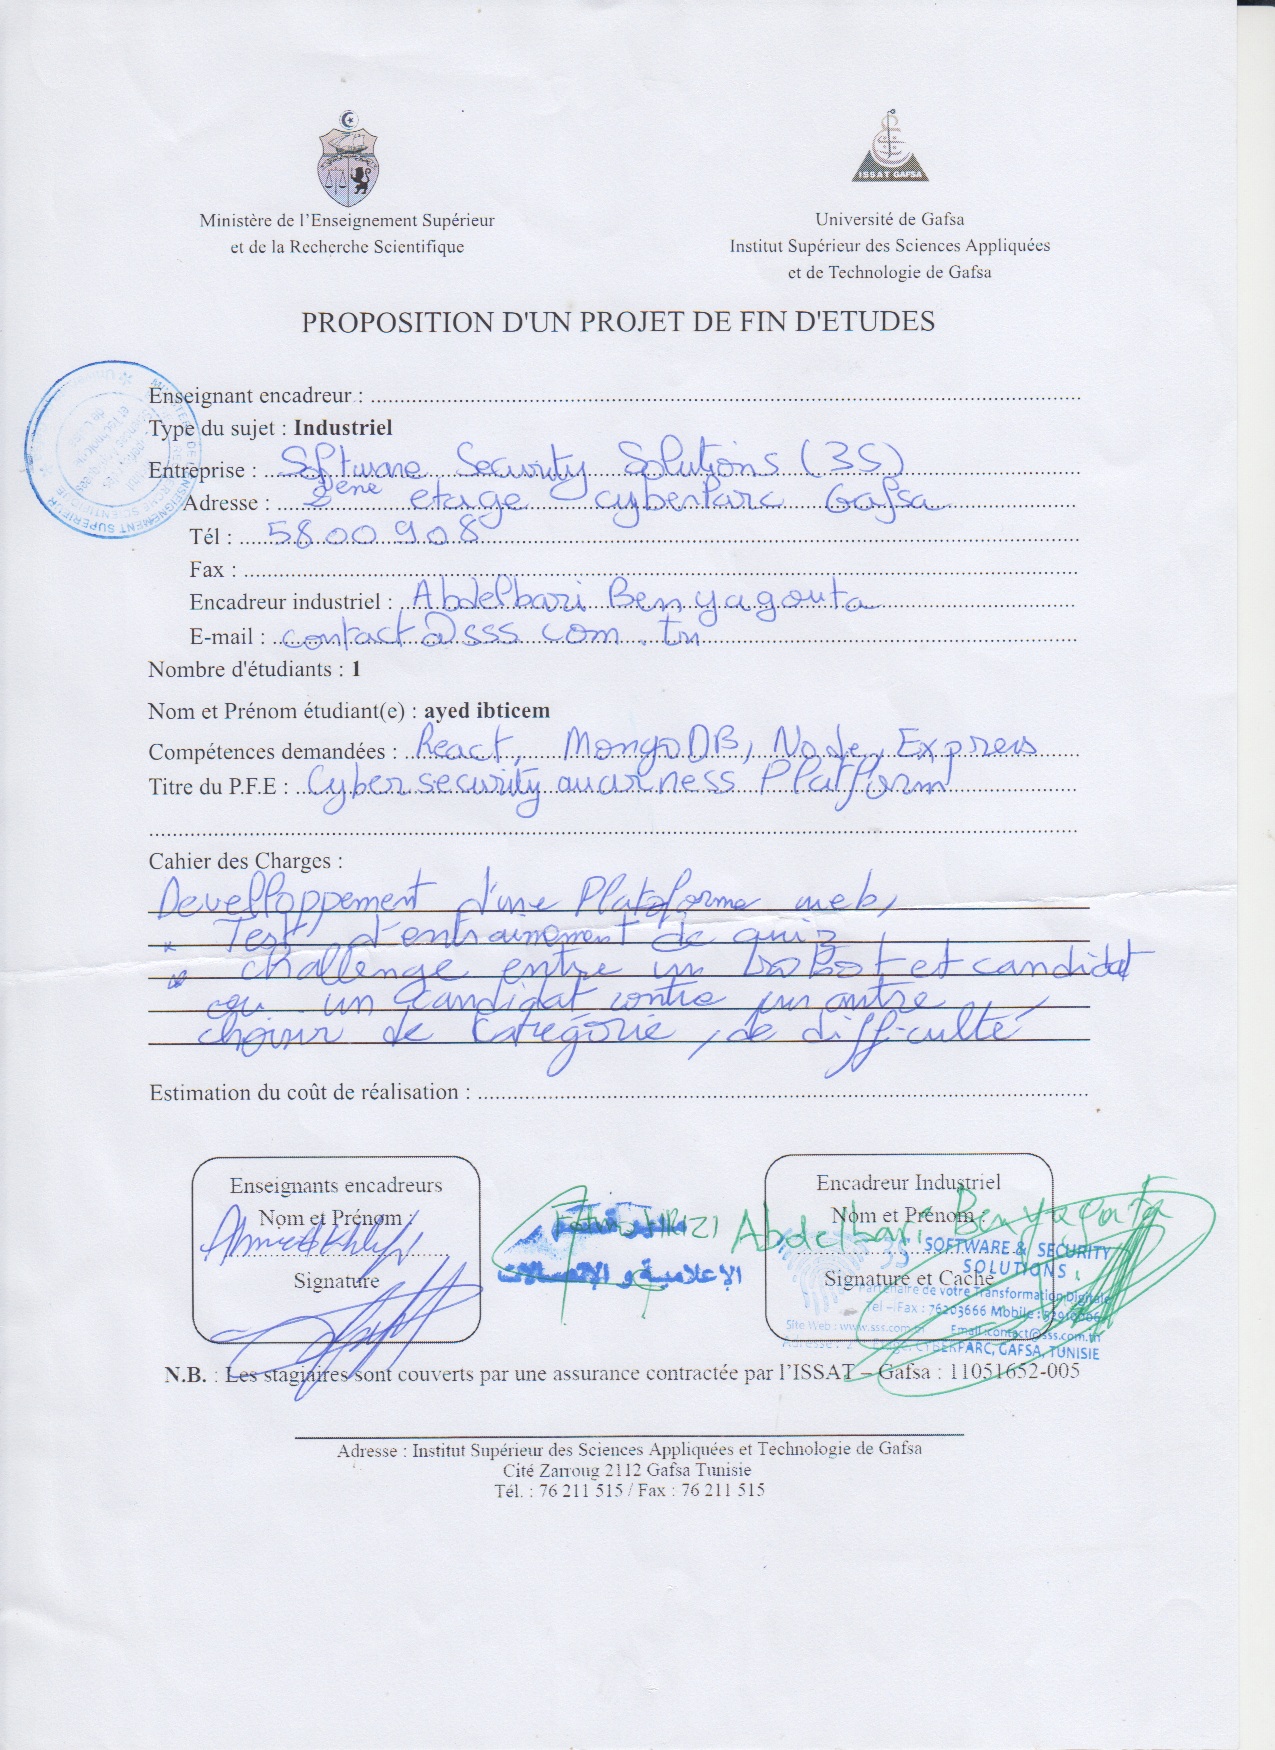 ISSAT GAFSA
Ministère de l'Enseignement Supérieur
et de la Recherche Scientifique
Université de Gafsa
Institut Supérieur des Sciences Appliquées
et de Technologie de Gafsa
PROPOSITION D'UN PROJET DE FIN D'ETUDES
Enseignant encadreur :
Type du sujet : Industriel
Entreprise : Software Security Solutions (3S)
Adresse : 2ème etage cyberParc Gafsa
Tél : 58 00 9 08
Fax :
Encadreur industriel : Abdelbari Benyagouta
E-mail : contact@sss com .tn
Nombre d'étudiants : 1
Nom et Prénom étudiant(e) : ayed ibticem
Compétences demandées : React, MongoDB, Node, Express
Titre du P.F.E : Cybersecurity awarness Platform
Cahier des Charges :
Develloppement d'une Plateforme web,
* Test d'entrainement de quiz
* challenge entre un roBot et candidat
ou un candidat contre un autre
choisir de catégorie, de difficulté
Estimation du coût de réalisation :
Enseignants encadreurs
Nom et Prénom :
Signature
الإعلامية و الإتصالات
Encadreur Industriel
Nom et Prénom :
Abdelbari Benyagouta
SOFTWARE & SECURITY
SOLUTIONS
Signature et Cache
Partenaire de votre Transformation Digitale
Tel - Fax : 76203666 Mobile :
Site Web : www.sss.com.tn Email :contact@sss.com.tn
Adresse : 2 Etage, CYBERPARC, GAFSA, TUNISIE
N.B. : Les stagiaires sont couverts par une assurance contractée par l'ISSAT – Gafsa : 11051652-005
Adresse : Institut Supérieur des Sciences Appliquées et Technologie de Gafsa
Cité Zarroug 2112 Gafsa Tunisie
Tél. : 76 211 515 / Fax : 76 211 515